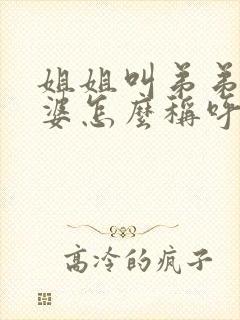 姐姐叫弟弟
婆怎麼稱呼
高冷的疯子